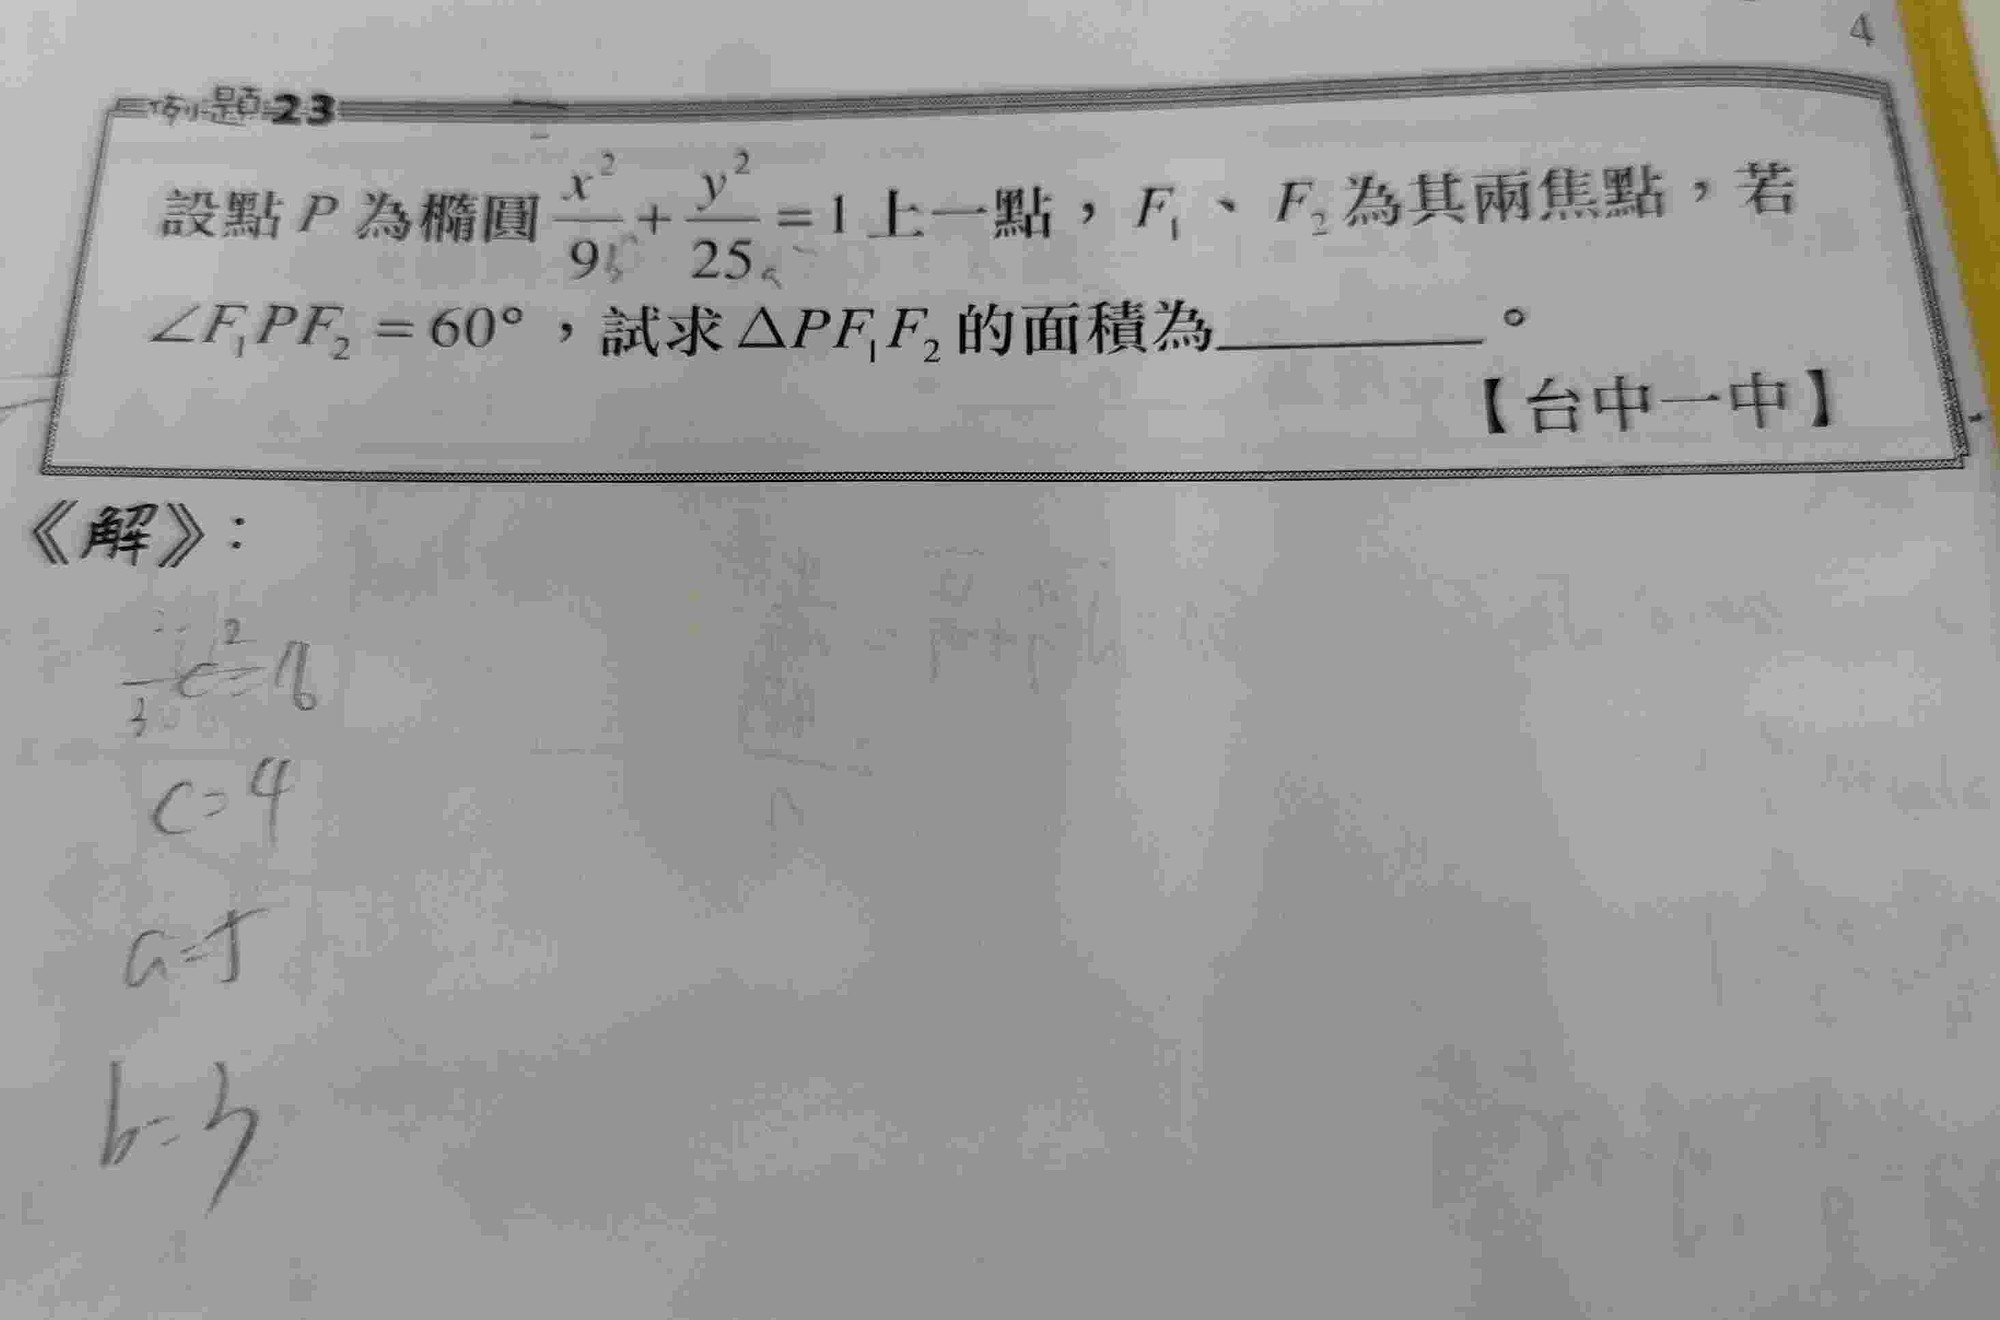 4
例題23
設點 P 為橢圓 x²/9 + y²/25 = 1 上一點，F₁、F₂ 為其兩焦點，若
∠F₁PF₂ = 60°，試求 ΔPF₁F₂ 的面積為________。
【台中一中】
《解》：
c²=16
c=4
a=5
b=3